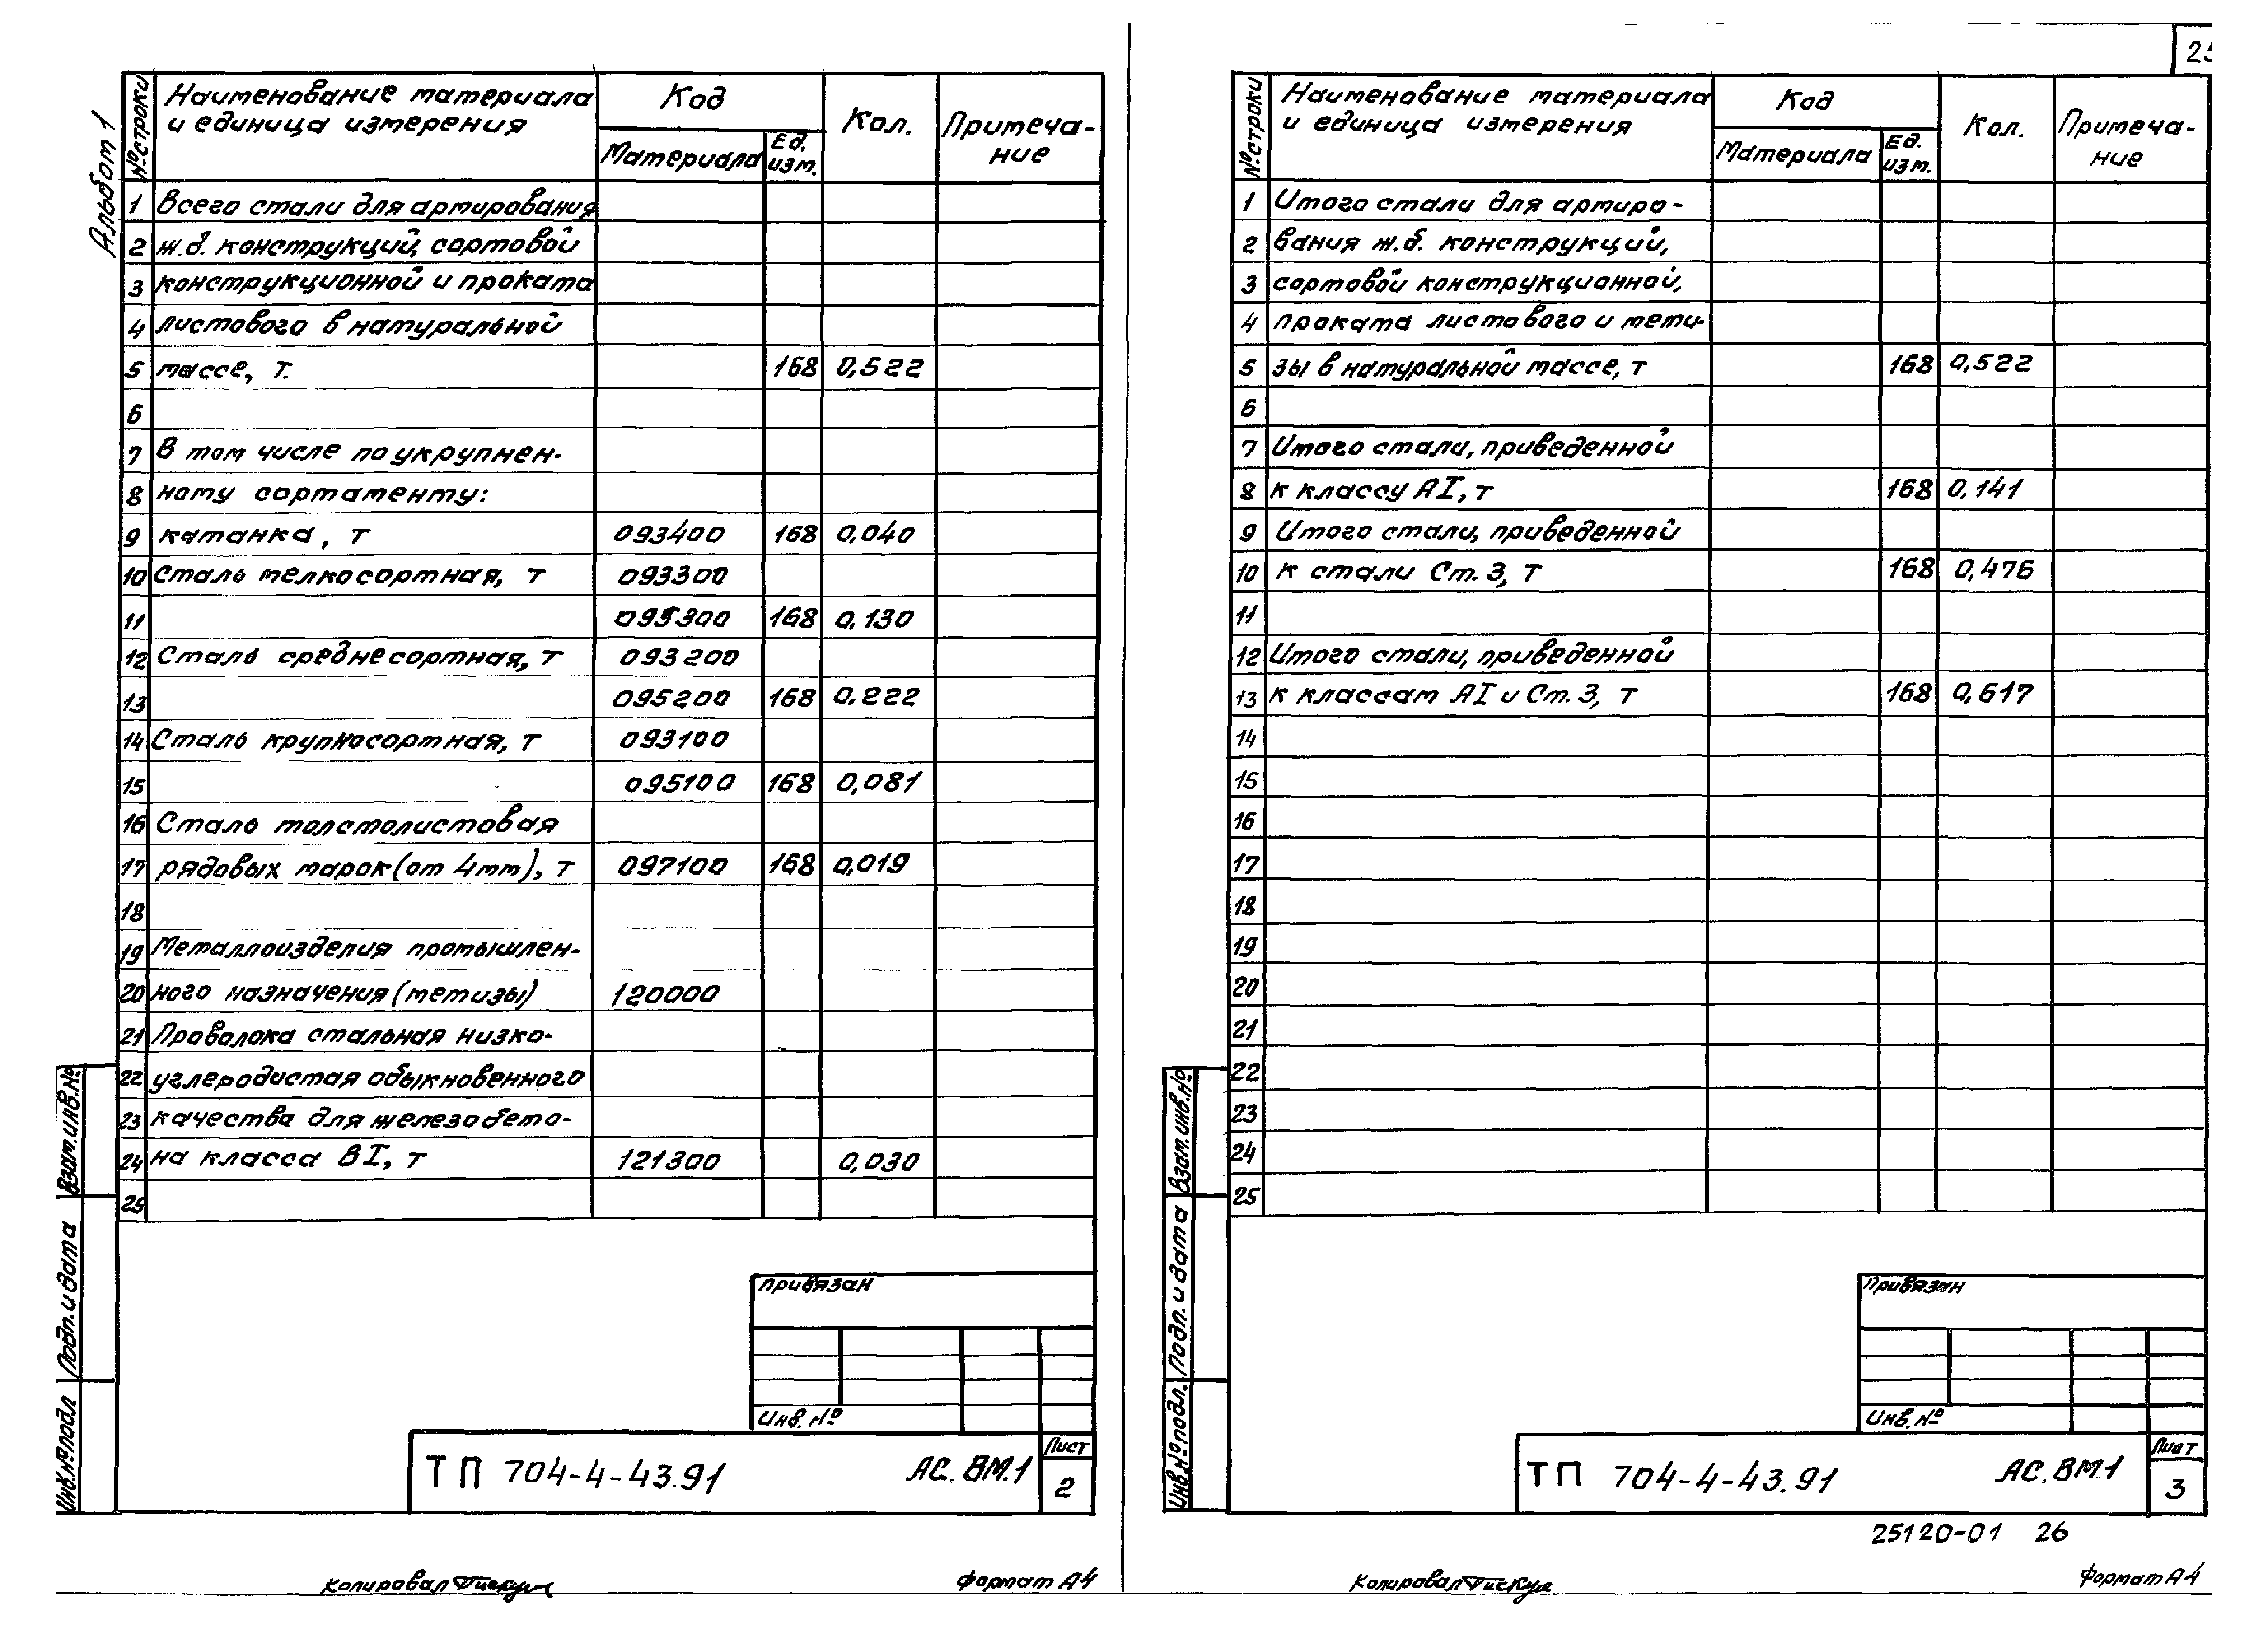 Альбом 1
№ строки
Наименование материала
и единица измерения
Код
Материала
Ед.
изм.
Кол.
Примеча-
ние
1 Всего стали для армирования
2 ж.б. конструкций, сортовой
3 конструкционной и проката
4 листового в натуральной
5 массе, т. 168 0,522
6
7 В том числе по укрупнен-
8 ному сортаменту:
9 катанка, т 093400 168 0,040
10 Сталь мелкосортная, т 093300
11 095300 168 0,130
12 Сталь среднесортная, т 093200
13 095200 168 0,222
14 Сталь крупносортная, т 093100
15 095100 168 0,081
16 Сталь толстолистовая
17 рядовых марок (от 4мм), т 097100 168 0,019
18
19 Металлоизделия промышлен-
20 ного назначения (метизы) 120000
21 Проволока стальная низко-
22 углеродистая обыкновенного
23 качества для железобето-
24 на класса ВI, т 121300 0,030
25
Взам. инв. №
Подп. и дата
Инв. № подл
Привязан
Инв. №
ТП 704-4-43.91 АС. ВМ.1
Лист
2
Копировал
Формат А4
25
№ строки
Наименование материала
и единица измерения
Код
Материала
Ед.
изм.
Кол.
Примеча-
ние
1 Итого стали для армиро-
2 вания ж.б. конструкций,
3 сортовой конструкционной,
4 проката листового и мети-
5 зы в натуральной массе, т 168 0,522
6
7 Итого стали, приведенной
8 к классу АI, т 168 0,141
9 Итого стали, приведенной
10 к стали Ст. 3, т 168 0,476
11
12 Итого стали, приведенной
13 к классам АI и Ст. 3, т 168 0,617
14
15
16
17
18
19
20
21
22
23
24
25
Взам. инв. №
Подп. и дата
Инв. № подл.
Привязан
Инв. №
ТП 704-4-43.91 АС. ВМ.1
Лист
3
25120-01 26
Копировал
Формат А4